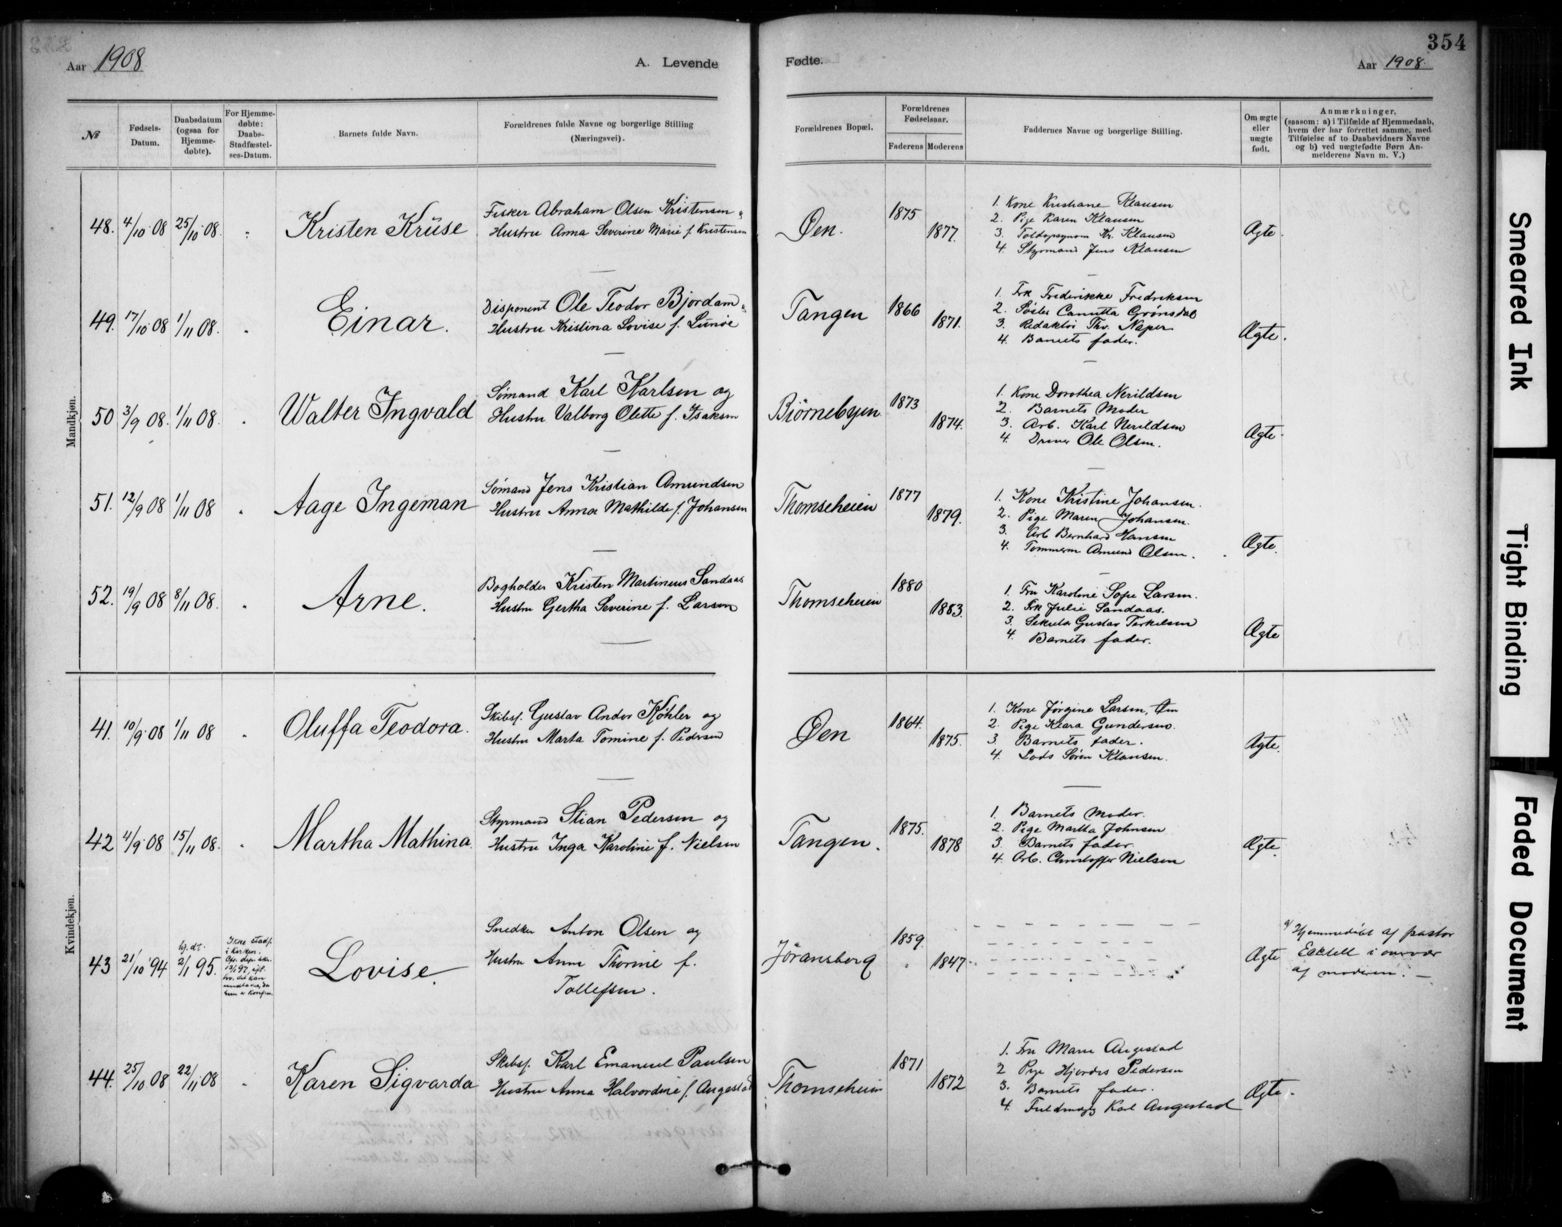 354
Aar 1908
A. Levende
Fødte.
Aar 1908
№
Fødsels-Datum.
Daabsdatum (ogsaa for Hjemme-døbte).
For Hjemme-døbte: Daabs-Stadfæstel-ses-Datum.
Barnets fulde Navn.
Forældrenes fulde Navne og borgerlige Stilling (Næringsvei).
Forældrenes Bopæl.
Forældrenes Fødselsaar.
Faderens
Moderens
Faddernes Navne og borgerlige Stilling.
Om ægte eller uægte født.
Anmærkninger,
(saasom: a) i Tilfælde af Hjemmedaab,
hvem der har forrettet samme, med
Tilføielse af to Daabsvidners Navne
og b) ved uægtefødte Børn An-
melderens Navn m. V.)
Mandkjøn.
48. 4/10 08 25/10 08 Kristen Krüse
Fisker Abraham Olsen Kristensen
Hustru Anna Severine Marie f. Kristensen
Øen. 1875 1877.
1. Kone Kristiane Klausen
2. Pige Karen Klausen
3. Toldopsynsm Kr. Klausen
4. Styrmand Jens Klausen
Ægte.
49. 17/10 08 1/11 08. Einar.
Disponent Ole Teodor Bjordam
Hustru Kristina Lovise f. Lunøe
Tangen 1866 1871.
1. Frk Frederikke Fredriksen
2. Camilla Grønsdal
3. Redaktør Thv. Naper
4. Barnets fader.
Ægte.
50 3/9 08. 1/11 08. Walter Ingvald
Sømand Karl Karlsen og
Hustru Valborg Olette f. Isaksen
Bjørnebyen 1873 1874.
1. Kone Dorothea Nerildsen
2. Barnets Moder
3. Arb. Karl Nerildsen
4. Ole Olsen.
Ægte.
51. 12/9 08 1/11 08 Aage Ingeman
Sømand Jens Kristian Amundsen
Hustru Anna Mathilde f. Johansen
Thomseheien 1877 1879.
1. Kone Kristine Johansen.
2. Pige Maren Johansen.
3. Arb Bernhard Hansen
4. Tømmerm Amund Olsen.
Ægte.
52. 19/9 08 8/11 08. Arne.
Bogholder Kristen Martinius Sandaas
Hustru Gertha Severine f. Larsen
Thomseheien 1880 1883.
1. Fru Karoline Sofie Larsen.
2. Frk Julie Sandaas.
3. Gustav Terkelsen
4. Barnets fader.
Ægte
Kvindekjøn.
41. 10/9 08 1/11 08 Oluffa Teodora.
Skibsf. Gustav Andor Køhler og
Hustru Marta Tomine f. Pedersen
Øen 1864. 1875.
1. Kone Jørgine Larsen,
2. Pige Klara Gundersen
3. Barnets fader.
4. Lods Søren Klausen.
Ægte.
42 4/9 08 15/11 08. Martha Mathina
Styrmand Stian Pedersen og
Hustru Inga Karoline f. Nielsen
Tangen. 1875. 1878
1. Barnets Moder.
2. Pige Martha Johnsen
3. Barnets fader
4. Arb. Christoffer Nielsen
Ægte.
43 21/10 94 hj. dt. 2/1 95. Ikke stadf. i kirken.
Lovise.
Snedker Anton Olsen og
Hustru Anne Thorine f.
Tollefsen.
Jøransberg 1859. 1847
Ægte
a/ Hjemmedøbt af pastor
i overvær
af moderen.
44. 25/10 08 22/11 08 Karen Sigvarda
Skibsf. Karl Emanuel Paulsen
Hustru Anna Halvordine f. Angestad
Thomseheien 1871 1872
1. Fru Marie Angestad
2 Pige Hjørdis Pedersen
3. Barnets fader.
4. Fuldmægg Karl Angestad
Ægte.
Smeared Ink
Tight Binding
Faded Document